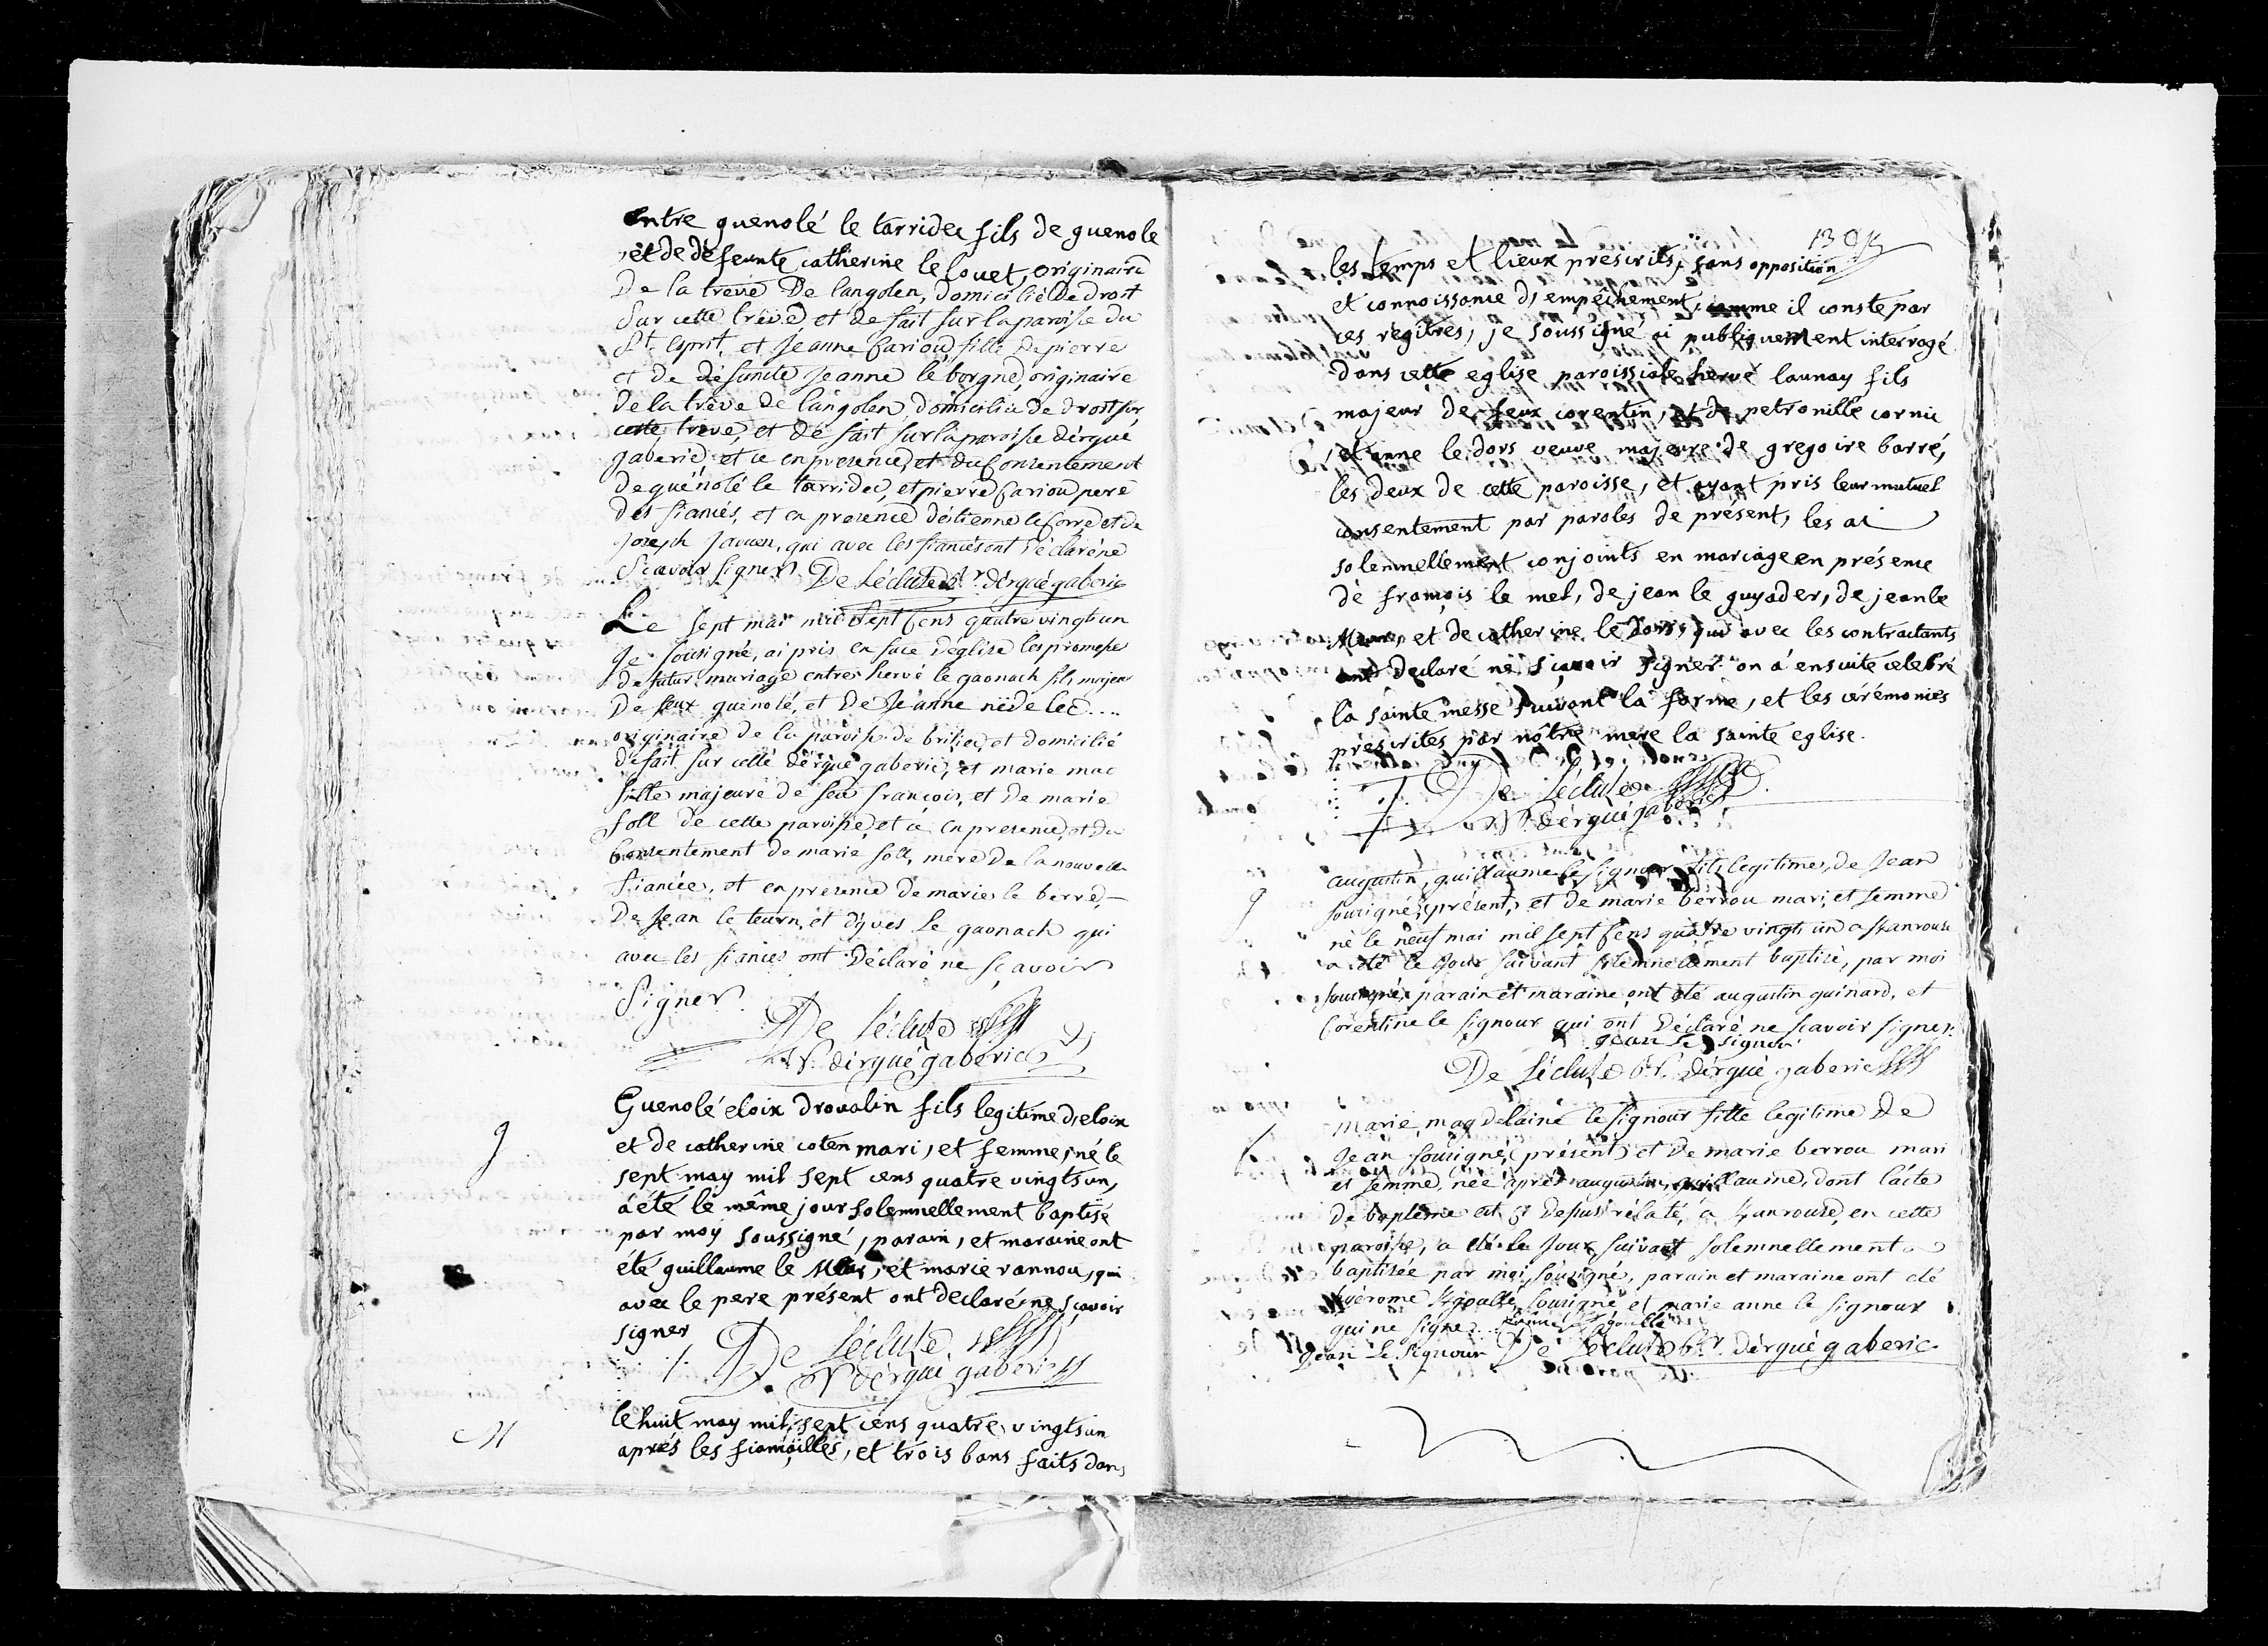 entre guenolé le tarridec fils de guenole
et de defeunte catherine le louet, originaire
De la treve De langolen, domicilié De droit
Sur cette treve, et de fait sur la paroisse du
St esprit, et Jeanne Cariou fille de pierre
et de défunte Jeanne le borgne, originaire
De la trève de langolen, domiciliée de droit sur
cette treve, et de fait sur la paroisse d'ergué
gaberic, et ce en presence, et du Consentement
de guénolé le tarridec, et pierre Cariou pere
des fiancés, et en presence d'etienne le corre, et de
joseph, qui avec les fiancés ont déclaré ne
Scavoir signer De Lécluse Rr. d'ergué gaberic
Le Sept mai mil Sept Cens quatre vingt un
Je Sousigné, ai pris en face d'église les promesse
de futur mariage entre hervé le gaonach fils majeur
De feux guénolé, et De Jeanne nédelec....
originaire de la paroisse de briec, et domicilié
de fait sur celle d'ergué gaberic, et marie mac
fille majeure de feu françois, et de marie
foll de cette paroisse, et ce en presence, et du
Consentement de marie foll, mere de la nouvelle
fiancée, et en presence de marie le berre,
De Jean le teurn, et d'yves le gaonach qui
avec les fiancés ont Déclaré ne sçavoir
Signer.
De Lécluse
Rr. d'ergué gaberic
g
Guenolé eloix droualin fils legitime d'eloix
et de catherine coten mari, et femme, né le
sept may mil sept cens quatre vingts un,
a été le même jour solemnellement baptisé
par moy soussigné, parain, et maraine ont
eté guillaume le Meur, et marie rannou, qui
avec le pere présent ont declaré ne sçavoir
signer
De Lécluse
Rr d'ergué gaberic
M
le huit may mil sept cens quatre vingts un
aprés les fiançailles, et trois bans faits dans
130
les temps et lieux prescrits, sans opposition
et connoissance d'empêchement, comme il conste par
ces régîtres, je soussigné ai publiquement interrogé
dans cette eglise paroissiale hervé launay fils
majeur de feux corentin, et de petronille cornic
, et anne le dors veuve majeure de gregoire barré,
les deux de cette paroisse, et ayant pris leur mutuel
consentement par paroles de présent, les ai
solemnellement conjoints en mariage en présence
de françois le mel, de jean le guyader, de jean le
Meur, et de catherine le dors, qui avec les contractants
ont declaré ne sçavoir signer. on a ensuite celebré
la sainte messe suivant la forme, et les cérémonies
préscrites par nôtre mere la sainte eglise.
De Lécluse
Rr. d'ergué gaberic
g
augustin, guillaume le signour fils legitime, de Jean
sousigné, présent, et de marie berrou mari, et femme
né le neuf mai mil sept Cens quatre vingt un a
a été le Jour suivant solemnellement baptisé, par moi
sousigné, parain et maraine ont été augustin guinard, et
Corentine le signour qui ont Déclaré ne scavoir signer.
jean le signour
De Lécluse Rr. d'ergué gaberic
Marie, magdelaine le signour fille legitime De
Jean sousigné, (présent) et De marie berrou mari
et femme, née après augustin, guillaume, dont l'acte
De baptême est cy dessus rélaté, a en cette
paroisse, a été le Jour suivant solemnellement
baptisée par moi sousigné, parain et maraine ont été
sousigné et marie anne le signour
qui ne signe
Jean Le Signour De Lécluse Rr. d'ergué gaberic